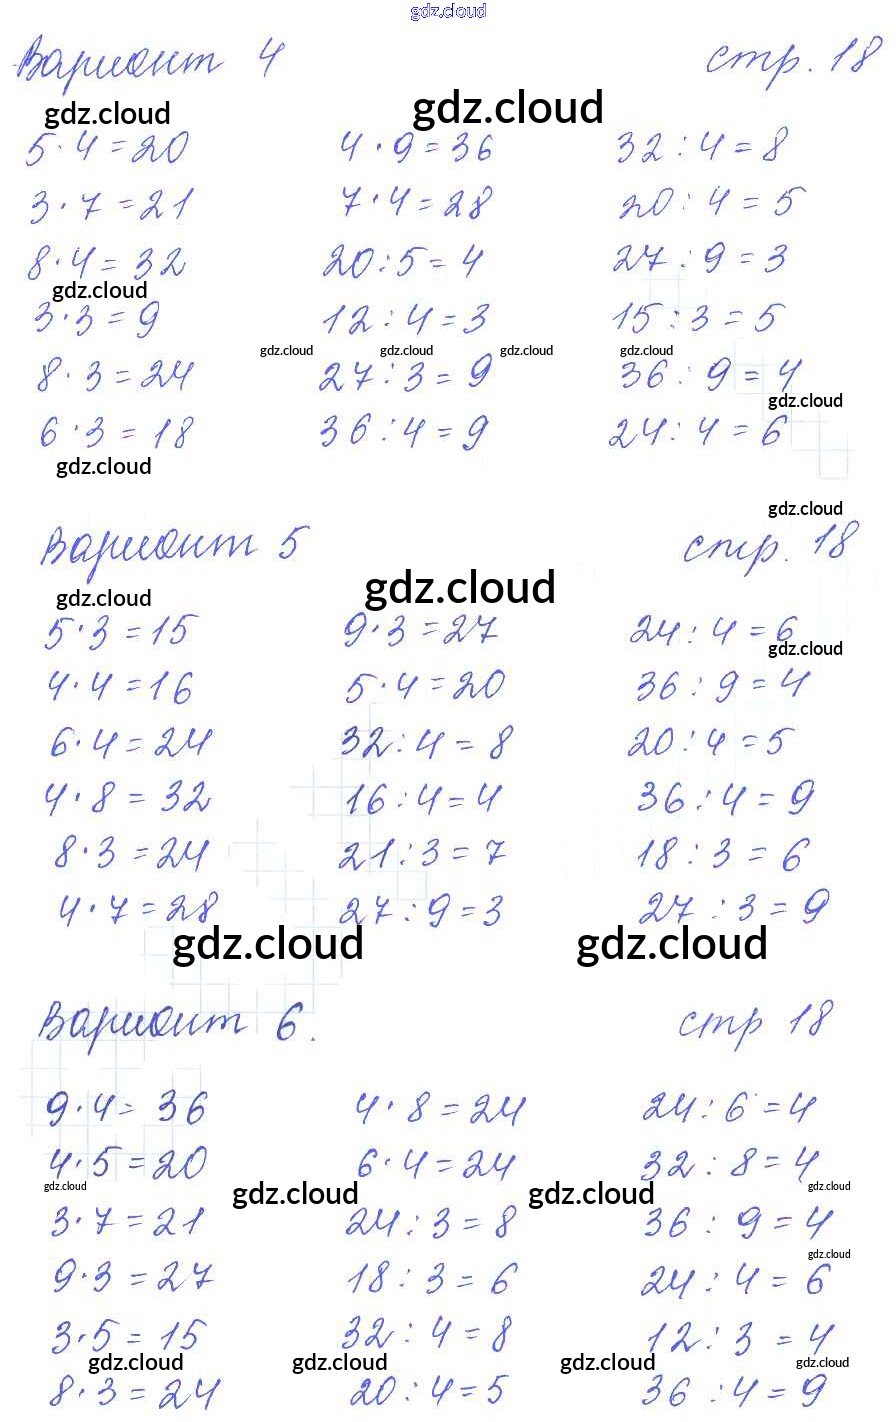 gdz.cloud
Вариант 4 стр. 18
gdz.cloud gdz.cloud
5·4=20 4·9=36 32:4=8
3·7=21 7·4=28 20:4=5
8·4=32 20:5=4 27:9=3
gdz.cloud
3·3=9 12:4=3 15:3=5
gdz.cloud gdz.cloud gdz.cloud gdz.cloud
8·3=24 27:3=9 36:9=4
gdz.cloud
6·3=18 36:4=9 24:4=6
gdz.cloud
gdz.cloud
Вариант 5 стр. 18
gdz.cloud gdz.cloud
5·3=15 9·3=27 24:4=6
gdz.cloud
4·4=16 5·4=20 36:9=4
6·4=24 32:4=8 20:4=5
4·8=32 16:4=4 36:4=9
8·3=24 21:3=7 18:3=6
4·7=28 27:9=3 27:3=9
gdz.cloud gdz.cloud
Вариант 6. стр 18
9·4=36 4·8=24 24:6=4
4·5=20 6·4=24 32:8=4
gdz.cloud gdz.cloud gdz.cloud gdz.cloud
3·7=21 24:3=8 36:9=4
gdz.cloud
9·3=27 18:3=6 24:4=6
3·5=15 32:4=8 12:3=4
gdz.cloud gdz.cloud gdz.cloud gdz.cloud
8·3=24 20:4=5 36:4=9